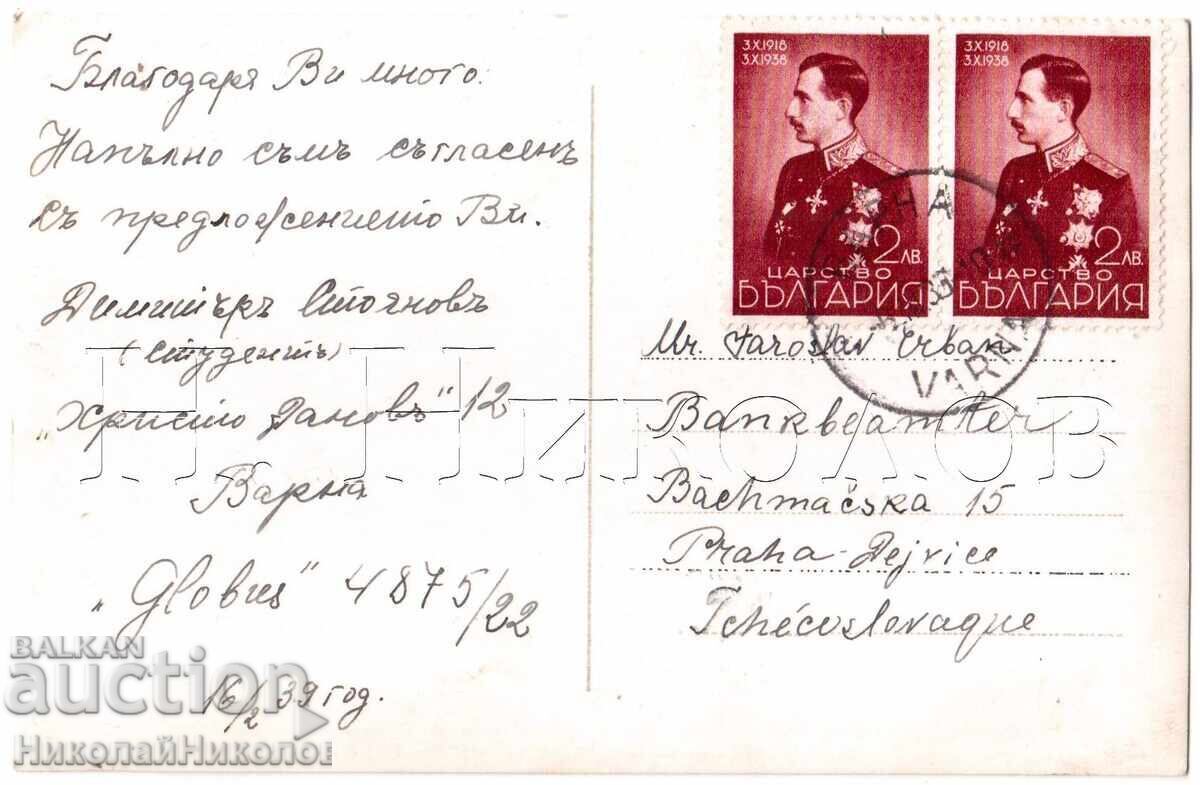 Благодаря Ви много.
Напълно съмъ съгласенъ
съ предложението Ви.
Димитъръ Стояновъ
(студентъ)
„Христо Дановъ" 12
Варна
„Globus" 4875/22
16/2 39 год.
3.X.1918
3.X.1938
2 ЛВ.
ЦАРСТВО
БЪЛГАРИЯ
3.X.1918
3.X.1938
2 ЛВ.
ЦАРСТВО
БЪЛГАРИЯ
ВАРНА
VARNA
Mr. Jaroslav Erban
Bankbeamter
Bachmačska 15
Praha-Dejvice
Tchécoslovaque
Н. НИКОЛОВ
BALKAN
auction
НиколайНиколов